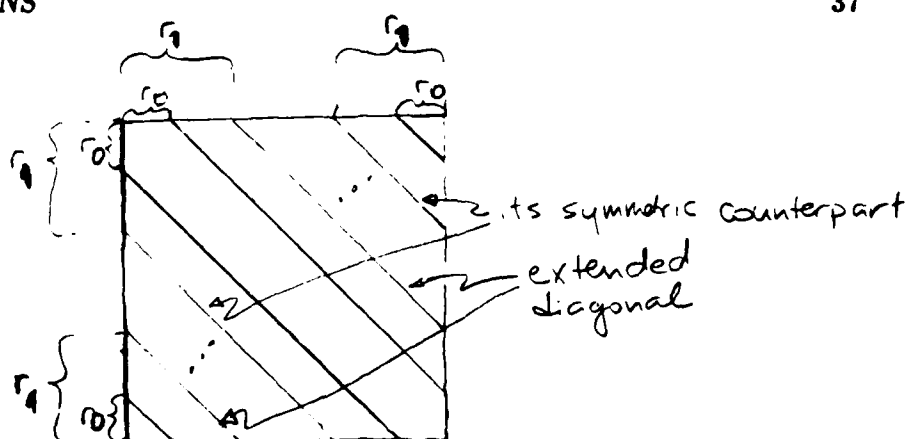 NS 37
r₁ r₁
r₀ r₀
r₁ r₀
its symmetric counterpart
extended
diagonal
r₁ r₀